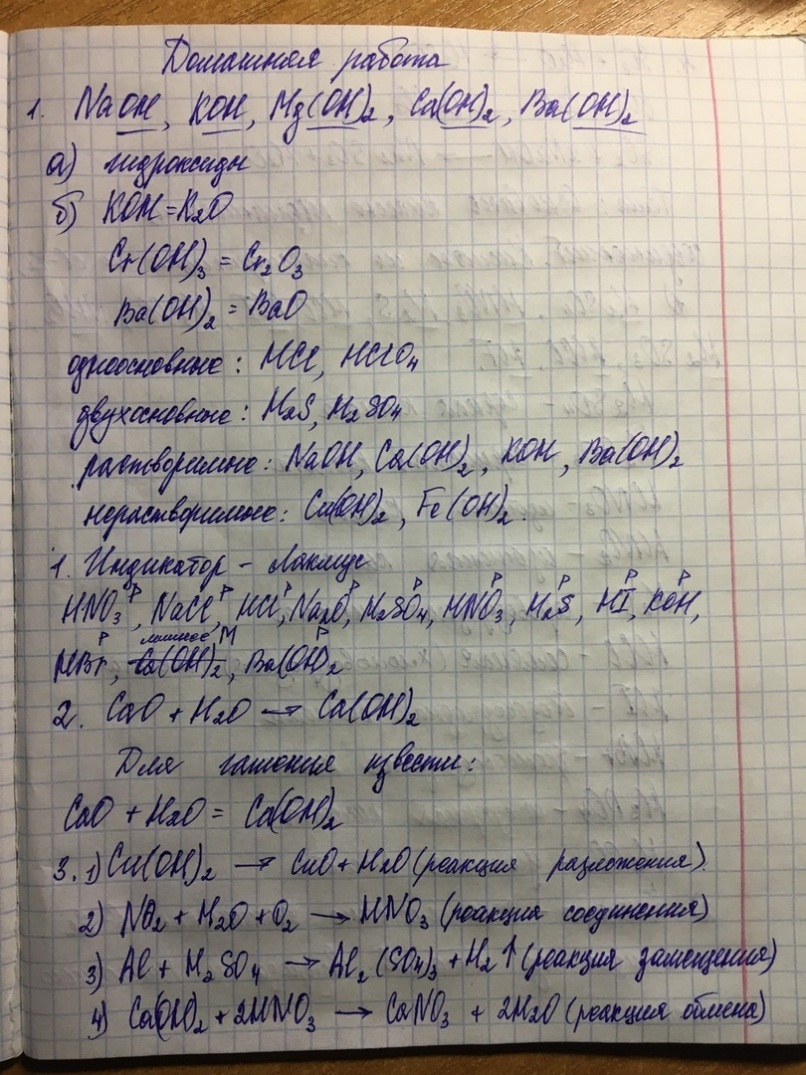 Домашняя работа
1. NaOH, KOH, Mg(OH)2, Ca(OH)2, Ba(OH)2
а) гидроксиды
б) KOH = K2O
Cr(OH)3 = Cr2O3
Ba(OH)2 = BaO
одноосновные: HCl, HClO4
двухосновные: H2S, H2SO4
растворимые: NaOH, Ca(OH)2, KOH, Ba(OH)2
нерастворимые: Cu(OH)2, Fe(OH)2.
1. Индикатор - Лакмус
HNO3 Р, NaCl Р, HCl Р, Na2O Р, H2SO4 Р, HNO3 Р, H2S Р, HI Р, KOH Р,
HBr Р, Ca(OH)2 лишнее М, Ba(OH)2 Р
2. CaO + H2O → Ca(OH)2
Для гашения извести:
CaO + H2O = Ca(OH)2
3. 1) Cu(OH)2 → CuO + H2O (реакция разложения).
2) NO2 + H2O + O2 → HNO3 (реакция соединения)
3) Al + H2SO4 → Al2(SO4)3 + H2↑ (реакция замещения)
4) Ca(OH)2 + 2HNO3 → CaNO3 + 2H2O (реакция обмена)